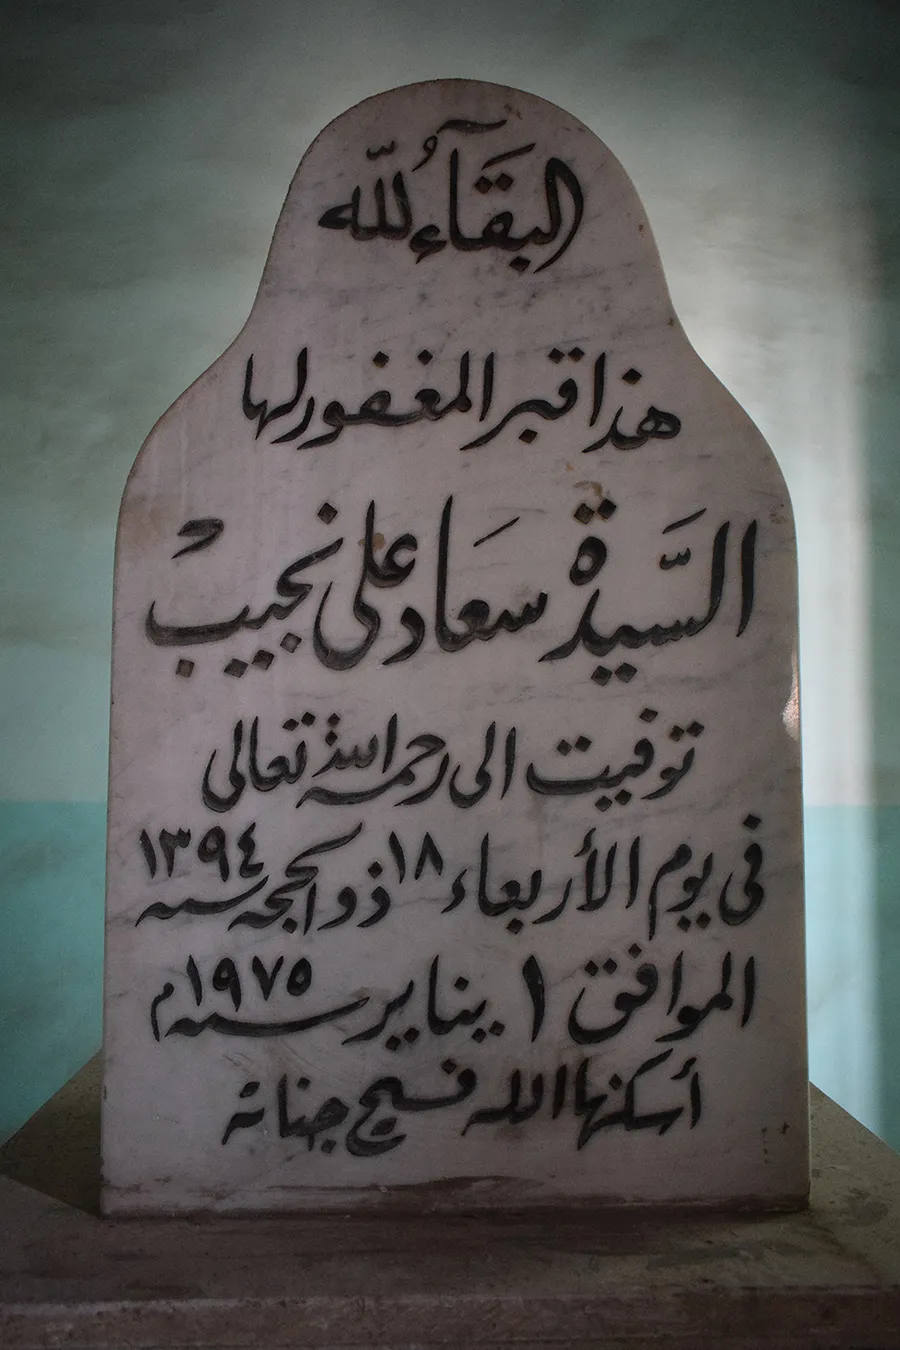 البقاء لله
هذا قبر المغفور لها
السَّيدة سعاد على نجيب
توفيت الى رحمة الله تعالى
فى يوم الأربعاء ١٨ ذو الحجه سنه ١٣٩٤
الموافق ١ يناير سنه ١٩٧٥م
أسكنها الله فسيح جناته